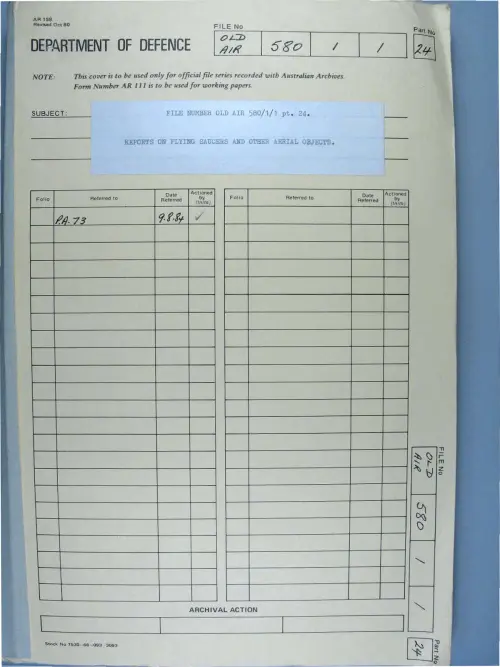 AR 108
Revised Oct 80
FILE No
Part No
DEPARTMENT OF DEFENCE
OLD AIR 580 1 1 24
NOTE: This cover is to be used only for official file series recorded with Australian Archives.
Form Number AR 111 is to be used for working papers.
SUBJECT:
FILE NUMBER OLD AIR 580/1/1 pt. 24.
REPORTS ON FLYING SAUCERS AND OTHER AERIAL OBJECTS.
Folio Referred to Date Referred Actioned By (Initls) Folio Referred to Date Referred Actioned By (Initls)
P.A. 73 9.8.84 ✓
ARCHIVAL ACTION
FILE No
OLD AIR 580 1 1
Part No
24